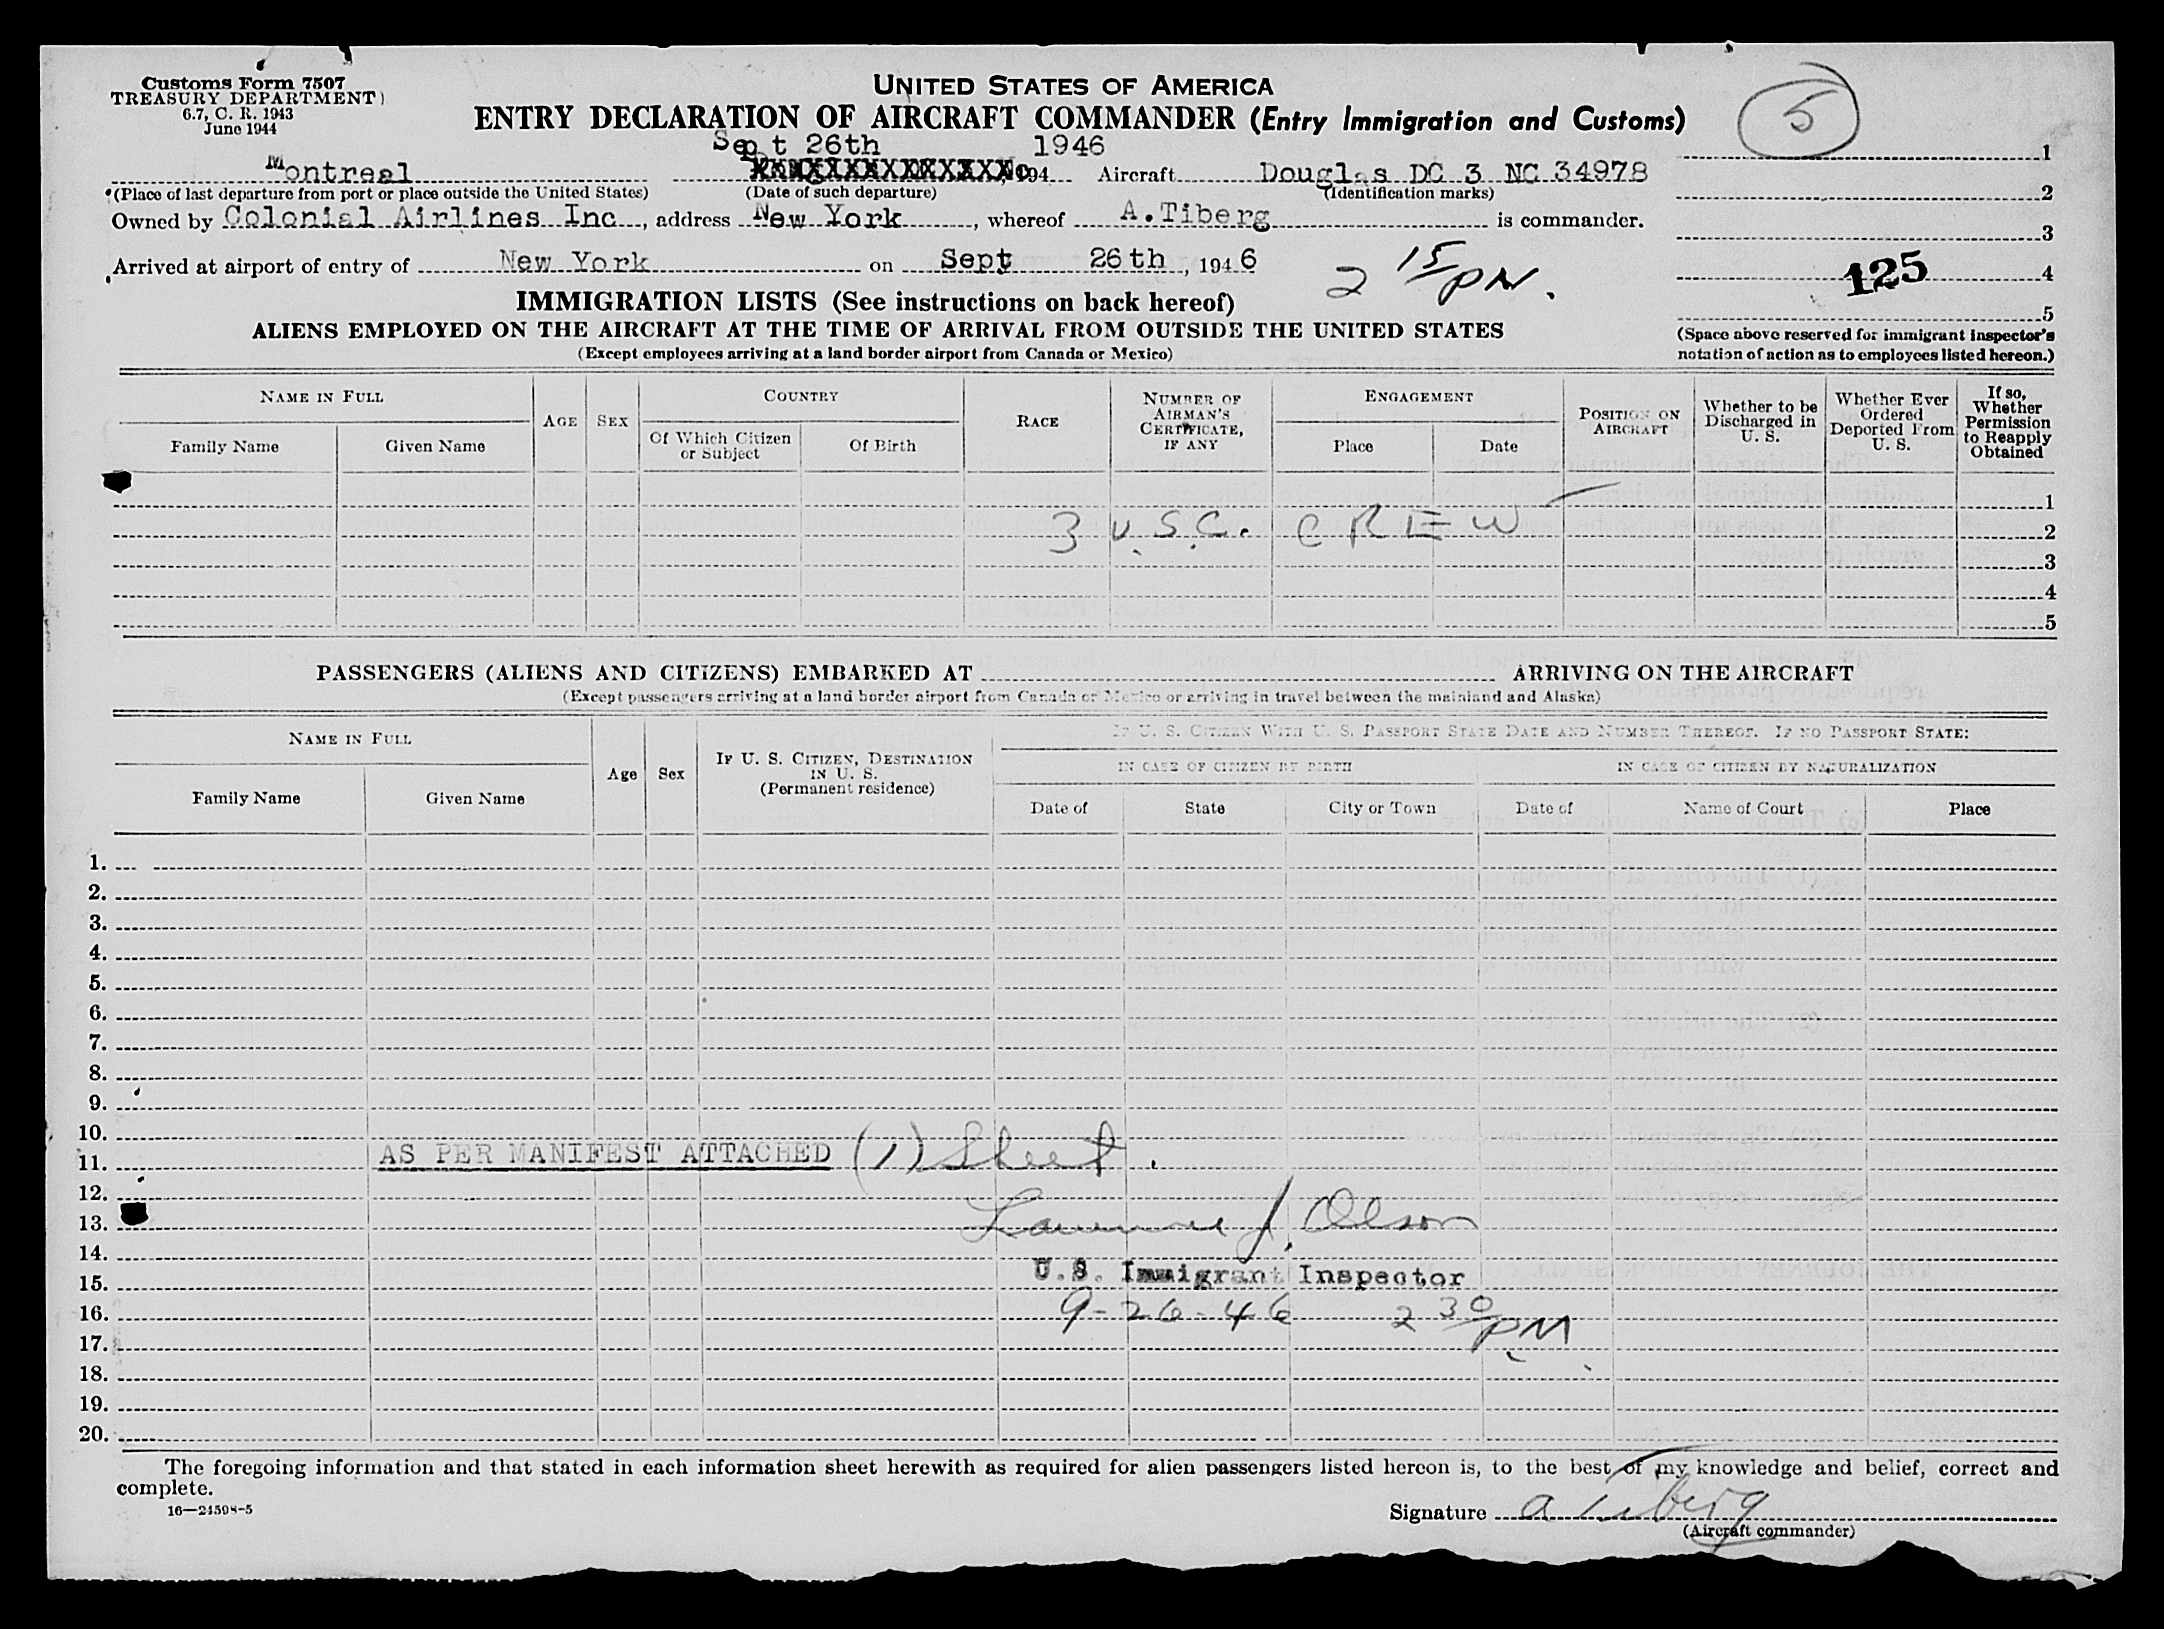 Customs Form 7507
TREASURY DEPARTMENT)
6.7, C. R. 1943
June 1944
UNITED STATES OF AMERICA
ENTRY DECLARATION OF AIRCRAFT COMMANDER (Entry Immigration and Customs)
5
Sept 26th 1946
Montreal , 194 Aircraft Douglas DC 3 NC 34978
(Place of last departure from port or place outside the United States) (Date of such departure) (Identification marks)
Owned by Colonial Airlines Inc , address New York , whereof A.Tiberg is commander.
Arrived at airport of entry of New York on Sept 26th , 1946
2 15/PM.
1
2
3
125 4
5
(Space above reserved for immigrant inspector's
notation of action as to employees listed hereon.)
IMMIGRATION LISTS (See instructions on back hereof)
ALIENS EMPLOYED ON THE AIRCRAFT AT THE TIME OF ARRIVAL FROM OUTSIDE THE UNITED STATES
(Except employees arriving at a land border airport from Canada or Mexico)
NAME IN FULL
Family Name Given Name
AGE SEX
COUNTRY
Of Which Citizen or Subject Of Birth
RACE
NUMBER OF AIRMAN'S CERTIFICATE, IF ANY
ENGAGEMENT
Place Date
POSITION ON AIRCRAFT
Whether to be Discharged in U. S.
Whether Ever Ordered Deported From U. S.
If so, Whether Permission to Reapply Obtained
1
3 U.S.C. CREW 2
3
4
5
PASSENGERS (ALIENS AND CITIZENS) EMBARKED AT ARRIVING ON THE AIRCRAFT
(Except passengers arriving at a land border airport from Canada or Mexico or arriving in travel between the mainland and Alaska)
NAME IN FULL
Family Name Given Name
Age Sex
IF U. S. CITIZEN, DESTINATION IN U. S.
(Permanent residence)
IF U. S. CITIZEN WITH U. S. PASSPORT STATE DATE AND NUMBER THEREOF. IF NO PASSPORT STATE:
IN CASE OF CITIZEN BY BIRTH IN CASE OF CITIZEN BY NATURALIZATION
Date of State City or Town Date of Name of Court Place
1.
2.
3.
4.
5.
6.
7.
8.
9.
10.
11. AS PER MANIFEST ATTACHED (1) Sheet.
12.
13. Lawrence J. Olson
14.
15. U.S. Immigrant Inspector
16. 9-26-46 2 30/PM.
17.
18.
19.
20.
The foregoing information and that stated in each information sheet herewith as required for alien passengers listed hereon is, to the best of my knowledge and belief, correct and
complete.
16—24598-5
Signature A Tiberg
(Aircraft commander)